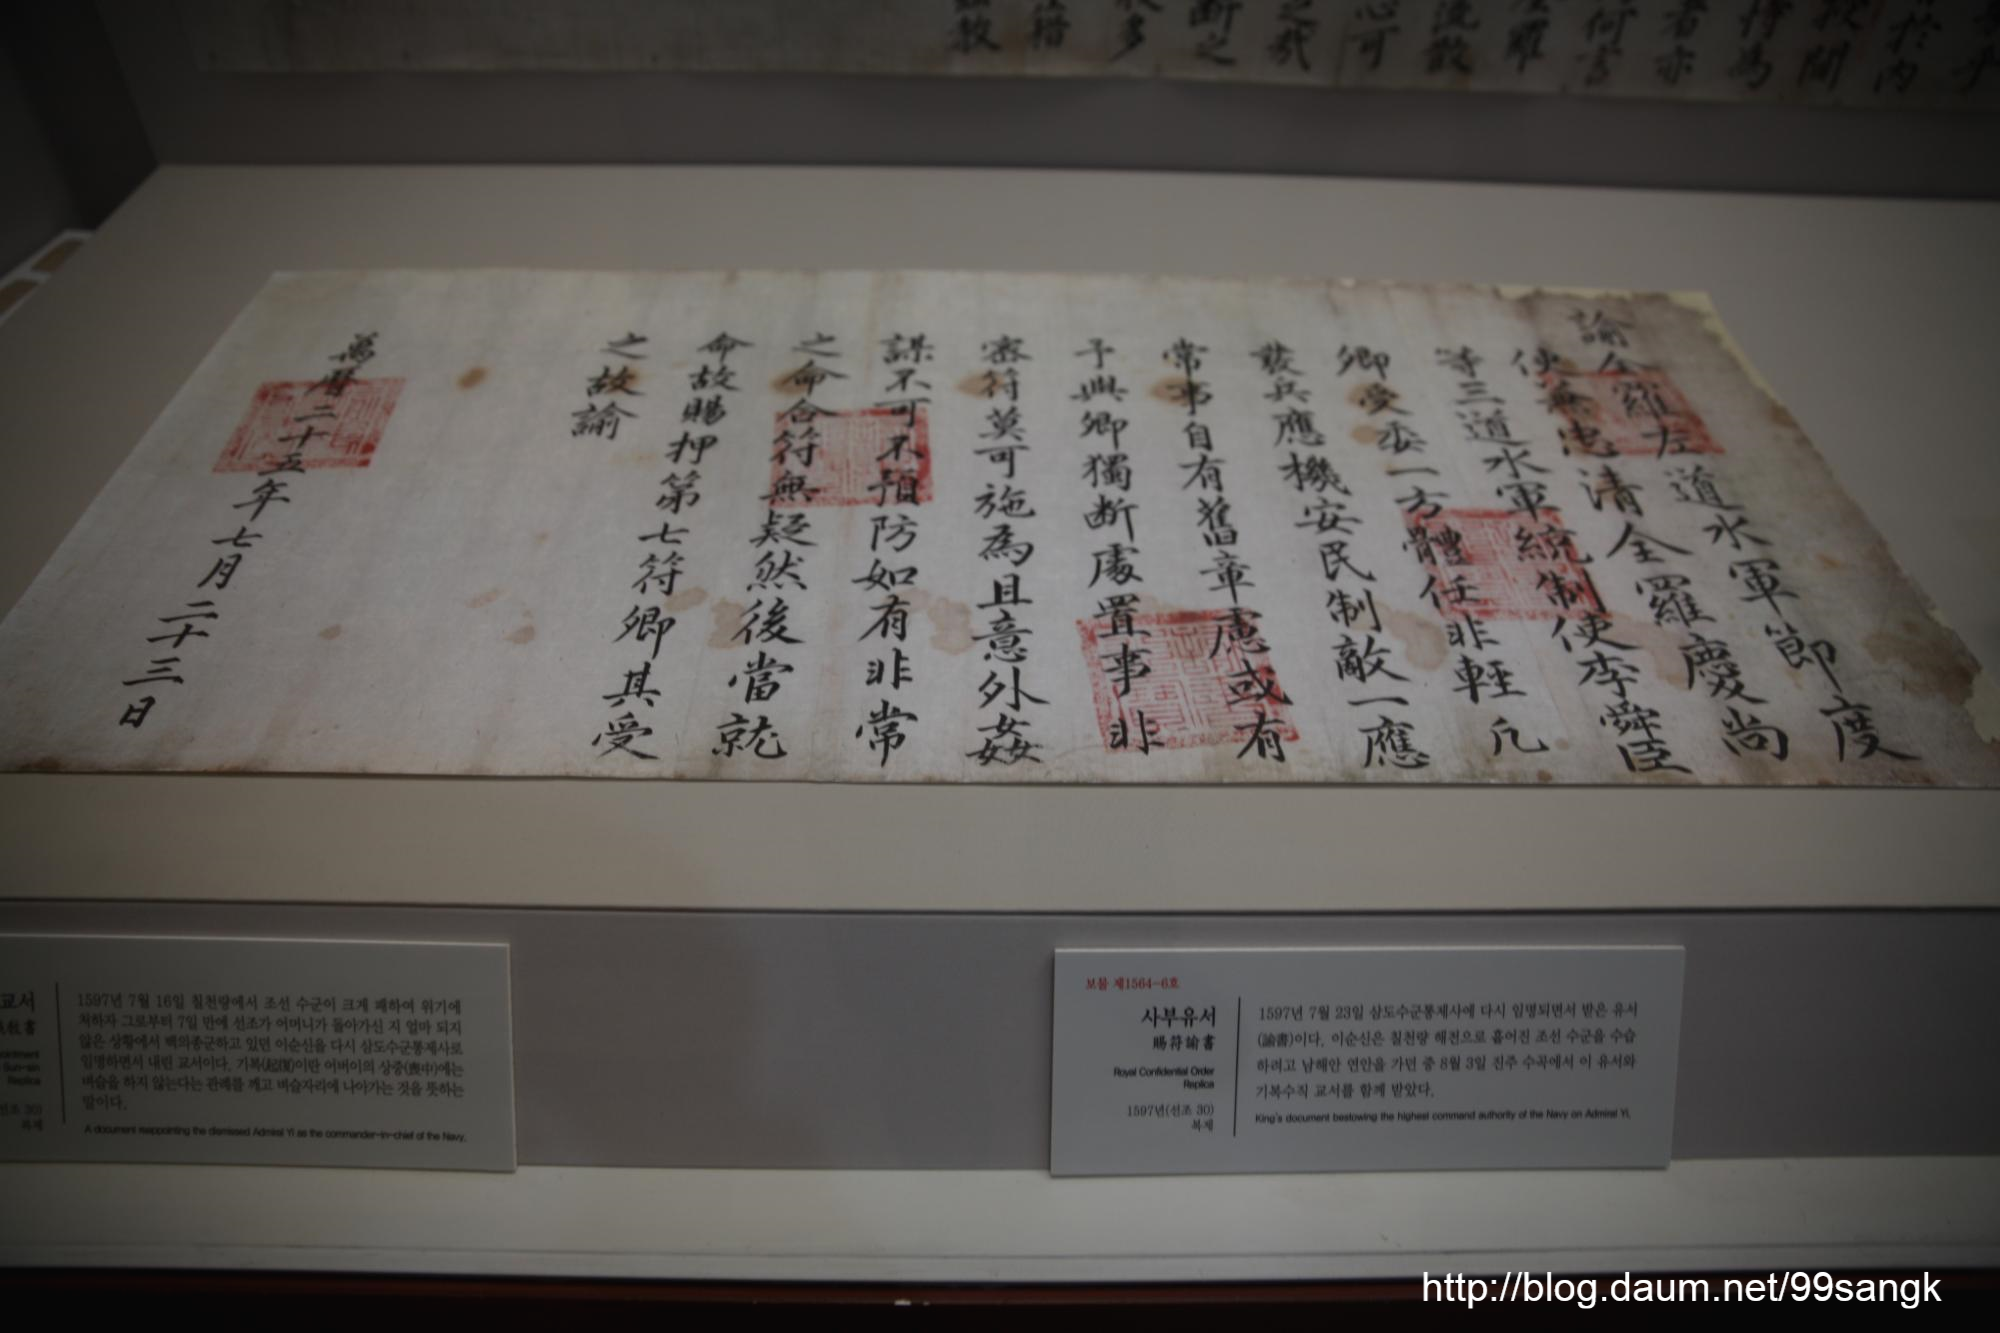 諭全羅左道水軍節度
使兼忠淸全羅慶尙
等三道水軍統制使李舜臣
卿受委一方體任非輕凡
發兵應機安民制敵一應
常事自有舊章慮或有
予與卿獨斷處置事非
密符莫可施爲且意外姦
謀不可不預防如有非常
之命合符無疑然後當就
命故賜押第七符卿其受
之故諭
萬曆二十五年七月二十三日
於內
投閒
持為
者亦
何言
流散
心可
之哉
斷之
多
교서
敎書
ointment
Sun-sin
Replica
선조 30)
복제
1597년 7월 16일 칠천량에서 조선 수군이 크게 패하여 위기에
처하자 그로부터 7일 만에 선조가 어머니가 돌아가신 지 얼마 되지
않은 상황에서 백의종군하고 있던 이순신을 다시 삼도수군통제사로
임명하면서 내린 교서이다. 기복(起復)이란 어버이의 상중(喪中)에는
벼슬을 하지 않는다는 관례를 깨고 벼슬자리에 나아가는 것을 뜻하는
말이다.
A document reappointing the dismissed Admiral Yi as the commander-in-chief of the Navy.
보물 제1564-6호
사부유서
賜符諭書
Royal Confidential Order
Replica
1597년(선조 30)
복제
1597년 7월 23일 삼도수군통제사에 다시 임명되면서 받은 유서
(諭書)이다. 이순신은 칠천량 해전으로 흩어진 조선 수군을 수습
하려고 남해안 연안을 가던 중 8월 3일 진주 수곡에서 이 유서와
기복수직 교서를 함께 받았다.
King's document bestowing the highest command authority of the Navy on Admiral Yi.
http://blog.daum.net/99sangk